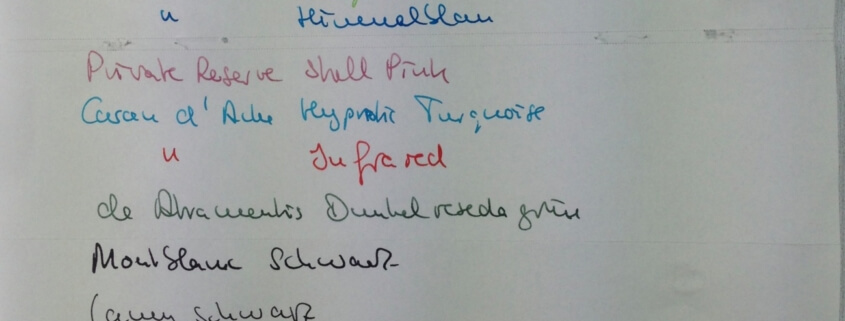 " Himmelblau
Private Reserve Shell Pink
Caran d'Ache Hypnotic Turquoise
" Infrared
de Atramentis Dunkelresedagrün
Montblanc Schwarz
Lamy Schwarz